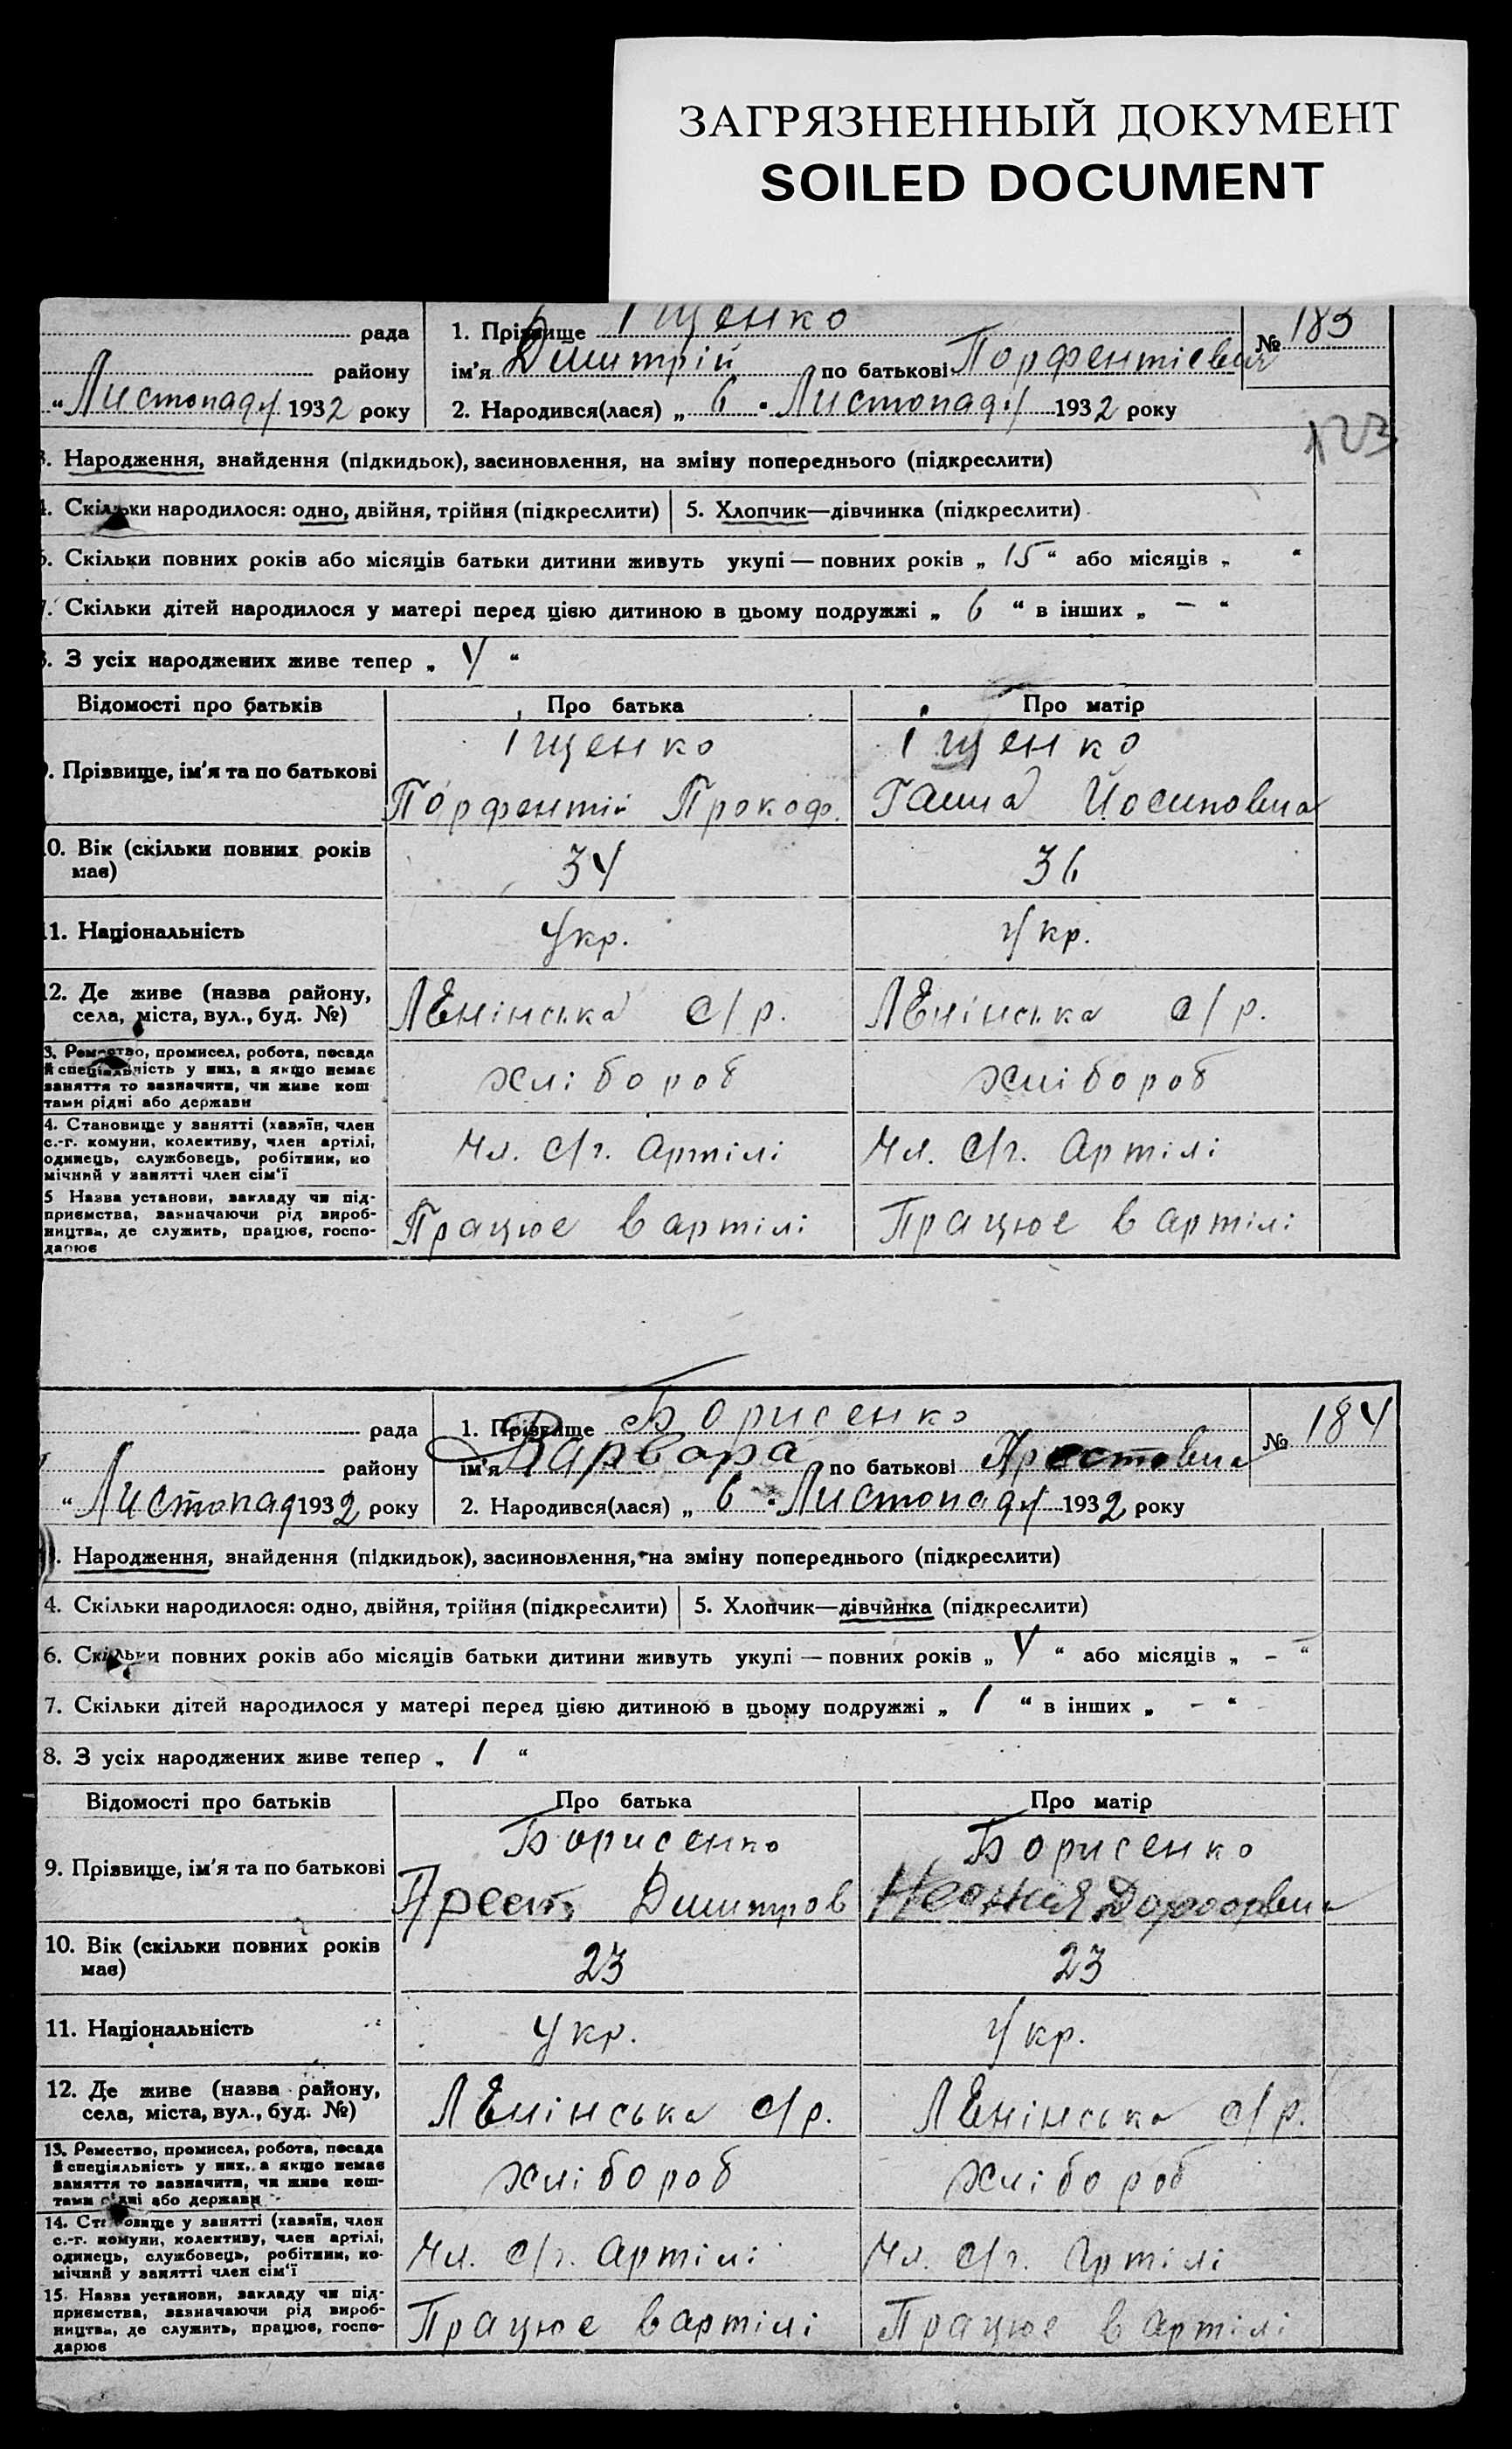 ЗАГРЯЗНЕННЫЙ ДОКУМЕНТ
SOILED DOCUMENT
рада
1. Прізвище Іщенко
№ 183
району
ім'я Дмитрій по батькові Порфентієвич
„ Листопаду 1932 року
2. Народився(лася) „ 6 " Листопаду 1932 року
123
3. Народження, знайдення (підкидьок), засиновлення, на зміну попереднього (підкреслити)
4. Скільки народилося: одно, двійня, трійня (підкреслити) 5. Хлопчик—дівчинка (підкреслити)
6. Скільки повних років або місяців батьки дитини живуть укупі — повних років „ 15 “ або місяців „ “
7. Скільки дітей народилося у матері перед цією дитиною в цьому подружжі „ 6 “ в інших „ — “
8. З усіх народжених живе тепер „ 4 “
Відомості про батьків Про батька Про матір
9. Прізвище, ім'я та по батькові
Іщенко
Порфентій Прокоф.
Іщенко
Ганна Йосиповна
10. Вік (скільки повних років
має)
34
36
11. Національність
Укр.
Укр.
12. Де живе (назва району,
села, міста, вул., буд. №)
Ленінська с/р.
Ленінська с/р.
13. Ремество, промисел, робота, посада
й спеціяльність у них, а якщо немає
заняття то зазначити, чи живе кош
тами рідні або держави
хлібороб
хлібороб
4. Становище у занятті (хазяїн, член
с.-г. комуни, колективу, член артілі,
одинець, службовець, робітник, по
мічний у занятті член сім'ї
Чл. с/г. артілі
Чл. с/г. артілі
5 Назва установи, закладу чи під-
приємства, зазначаючи рід вироб-
ництва, де служить, працює, госпо-
дарює
Працює в артілі
Працює в артілі
рада
1. Прізвище Борисенко
№ 184
району
ім'я Варвара по батькові Арестовна
“ Листопад 1932 року
2. Народився(лася) „ 6 " Листопаду 1932 року
. Народження, знайдення (підкидьок), засиновлення, на зміну попереднього (підкреслити)
4. Скільки народилося: одно, двійня, трійня (підкреслити) 5. Хлопчик—дівчинка (підкреслити)
6. Скільки повних років або місяців батьки дитини живуть укупі — повних років „ 4 “ або місяців „ - “
7. Скільки дітей народилося у матері перед цією дитиною в цьому подружжі „ 1 “ в інших „ - “
8. З усіх народжених живе тепер „ 1 “
Відомості про батьків Про батька Про матір
9. Прізвище, ім'я та по батькові
Борисенко
Арест Дмитров
Борисенко
10. Вік (скільки повних років
має)
23
23
11. Національність
Укр.
Укр.
12. Де живе (назва району,
села, міста, вул., буд. №)
Ленінська с/р.
Ленінська с/р.
13. Ремество, промисел, робота, посада
й спеціяльність у них, а якщо немає
заняття то зазначити, чи живе кош-
тами рідні або держави
хлібороб
хлібороб
14. Становище у занятті (хазяїн, член
с.-г. комуни, колективу, член артілі,
одинець, службовець, робітник, по-
мічний у занятті член сім'ї
Чл. с/г. артілі
Чл. с/г. артілі
15. Назва установи, закладу чи під-
приємства, зазначаючи рід вироб-
ництва, де служить, працює, госпо-
дарює
Працює в артілі
Працює в артілі